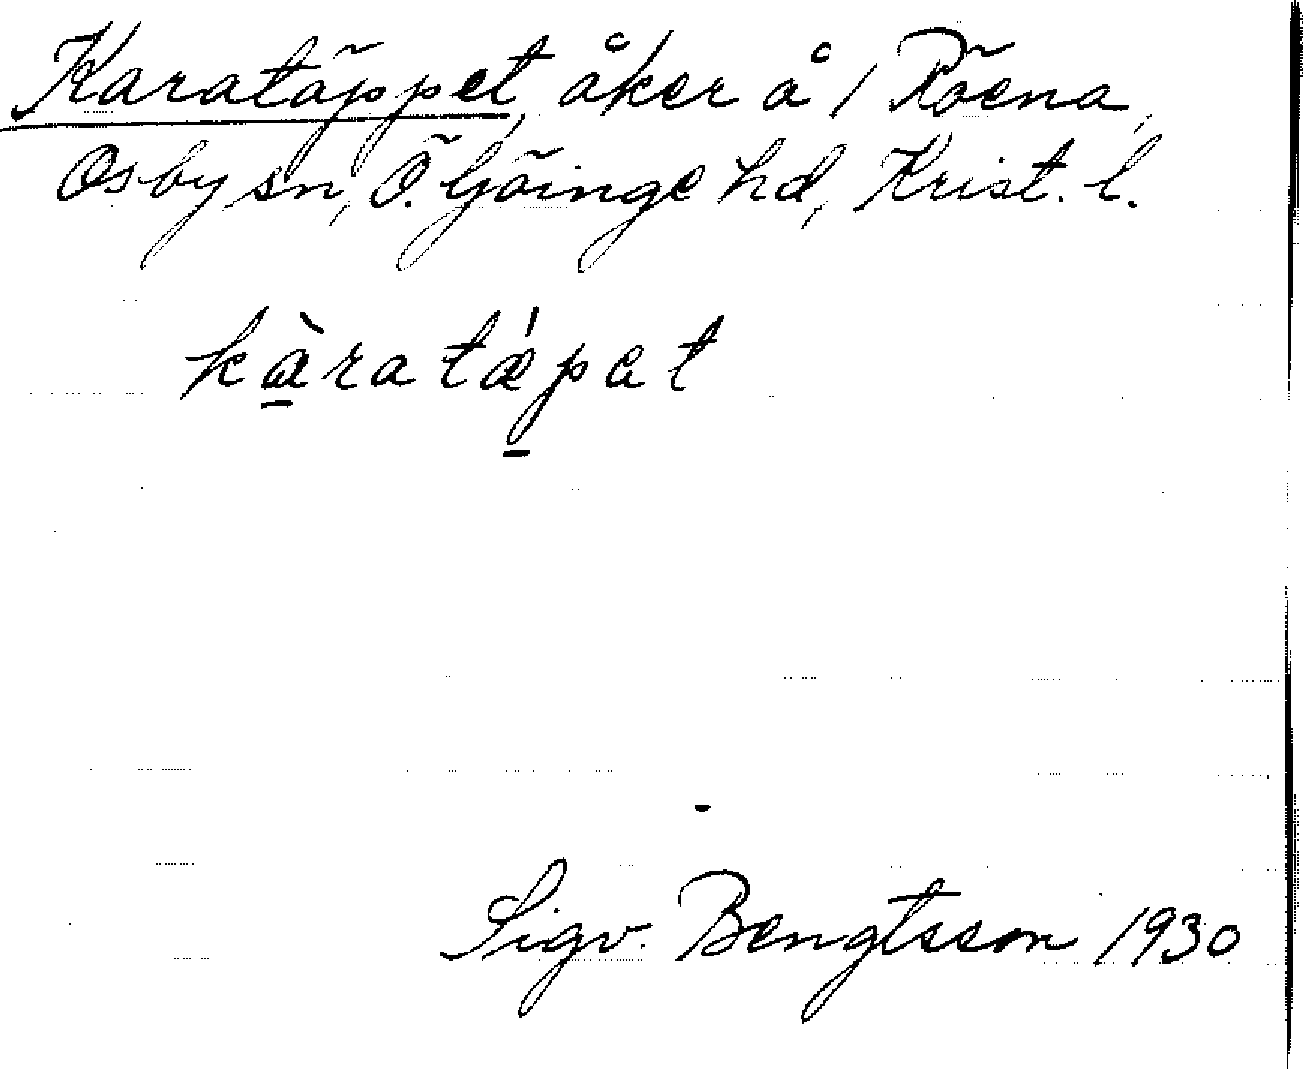 Karatäppet, åker å 1 Röena,
Osby sn, Ö. Göinge hd, Krist. l.
kàratǽpat
Sigv. Bengtsson 1930